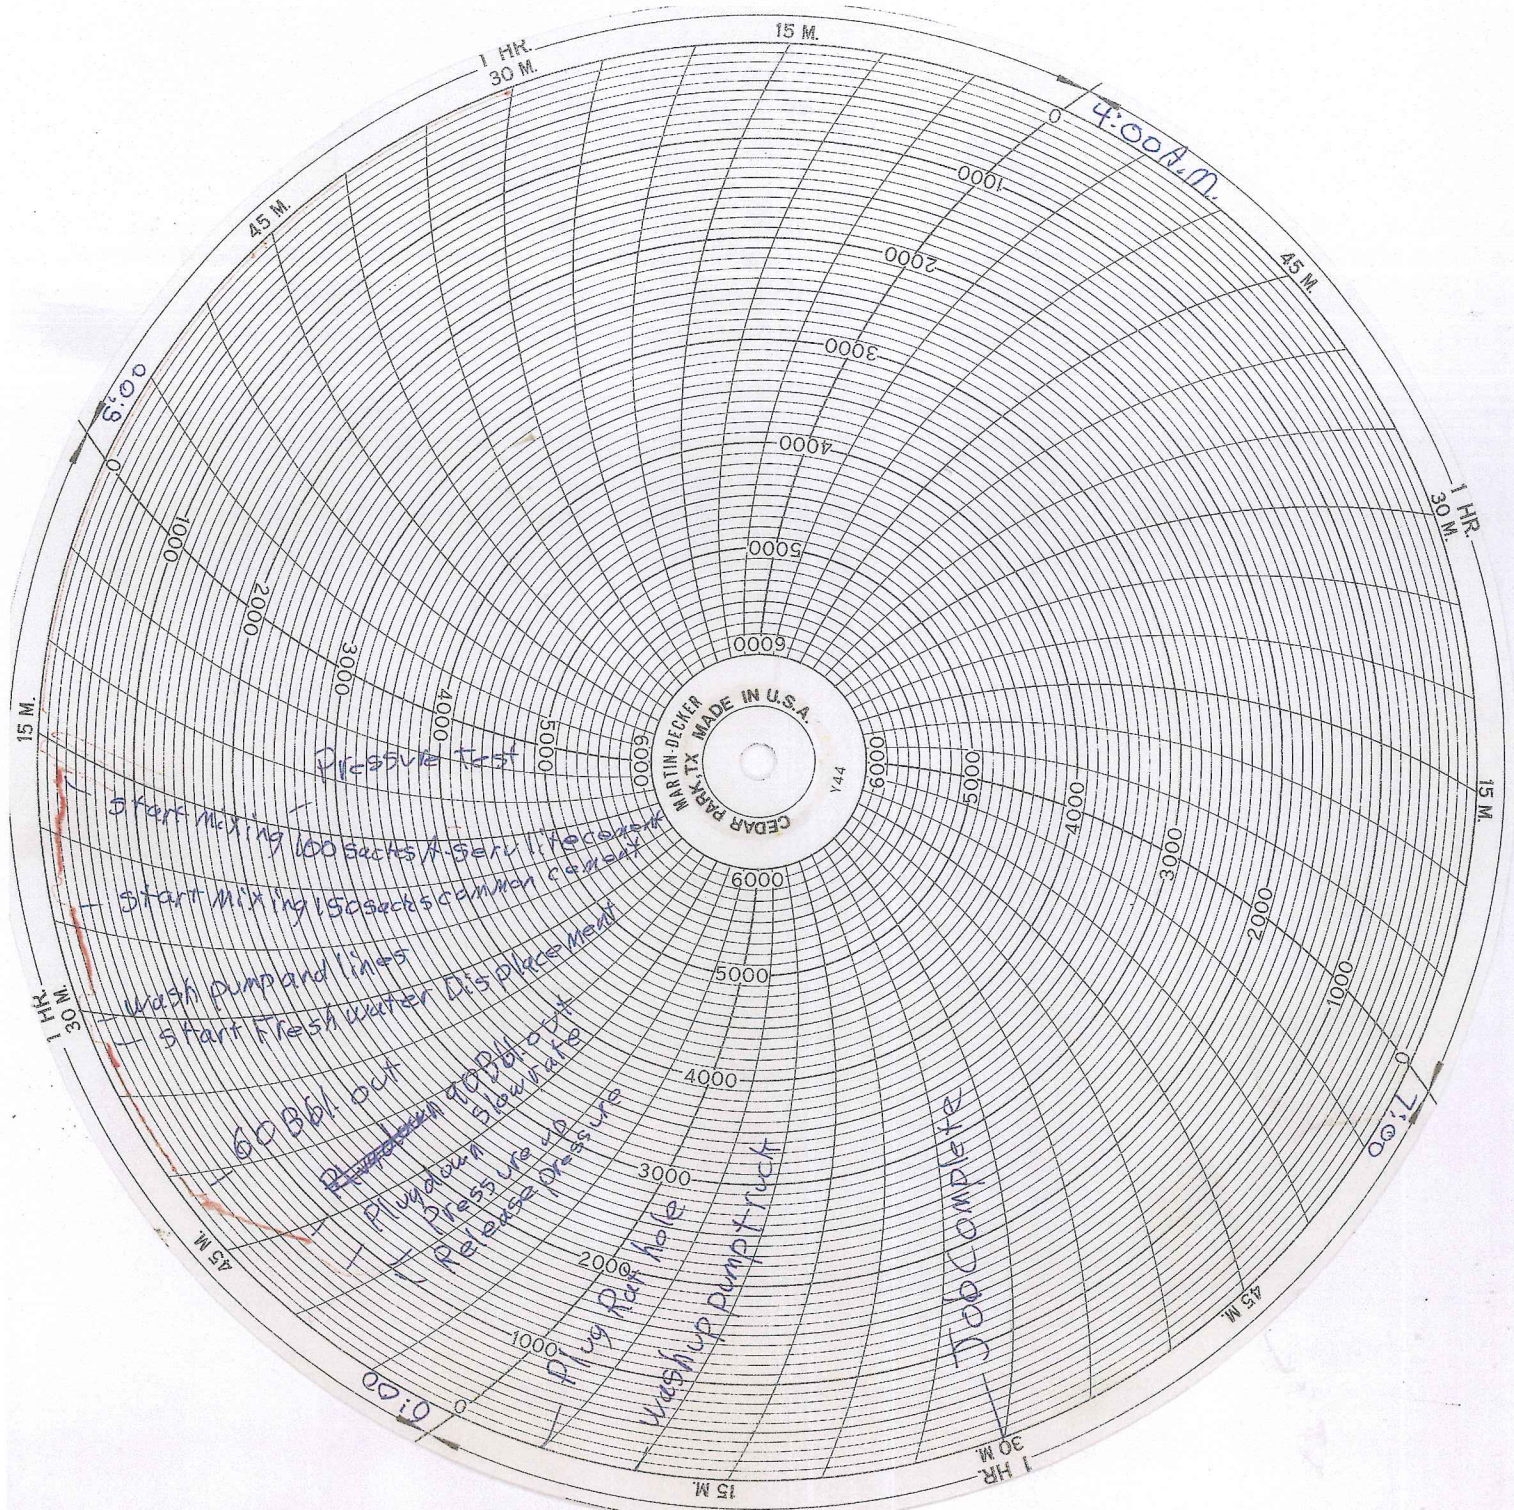 4:00 A.M.
5:00
6:00
7:00
1 HR.
30 M.
15 M.
45 M.
1 HR.
30 M.
15 M.
45 M.
1 HR.
30 M.
15 M.
45 M.
1 HR.
30 M.
15 M.
45 M.
0
1000
2000
3000
4000
5000
6000
0
1000
2000
3000
4000
5000
6000
0
1000
2000
3000
4000
5000
6000
0
1000
2000
3000
4000
5000
6000
MARTIN-DECKER
CEDAR PARK, TX MADE IN U.S.A.
Y44
Pressure Test
Start Mixing 100 sacks A-Serv lite cement
Start Mixing 150 sacks common cement
Wash pump and lines
Start Fresh water Displacement
60 Bbl. out
Plug down 90 Bbl. out
Slow rate
Plug down
Pressure up
Release pressure
Plug Rat hole
Wash up pump truck
Job Complete